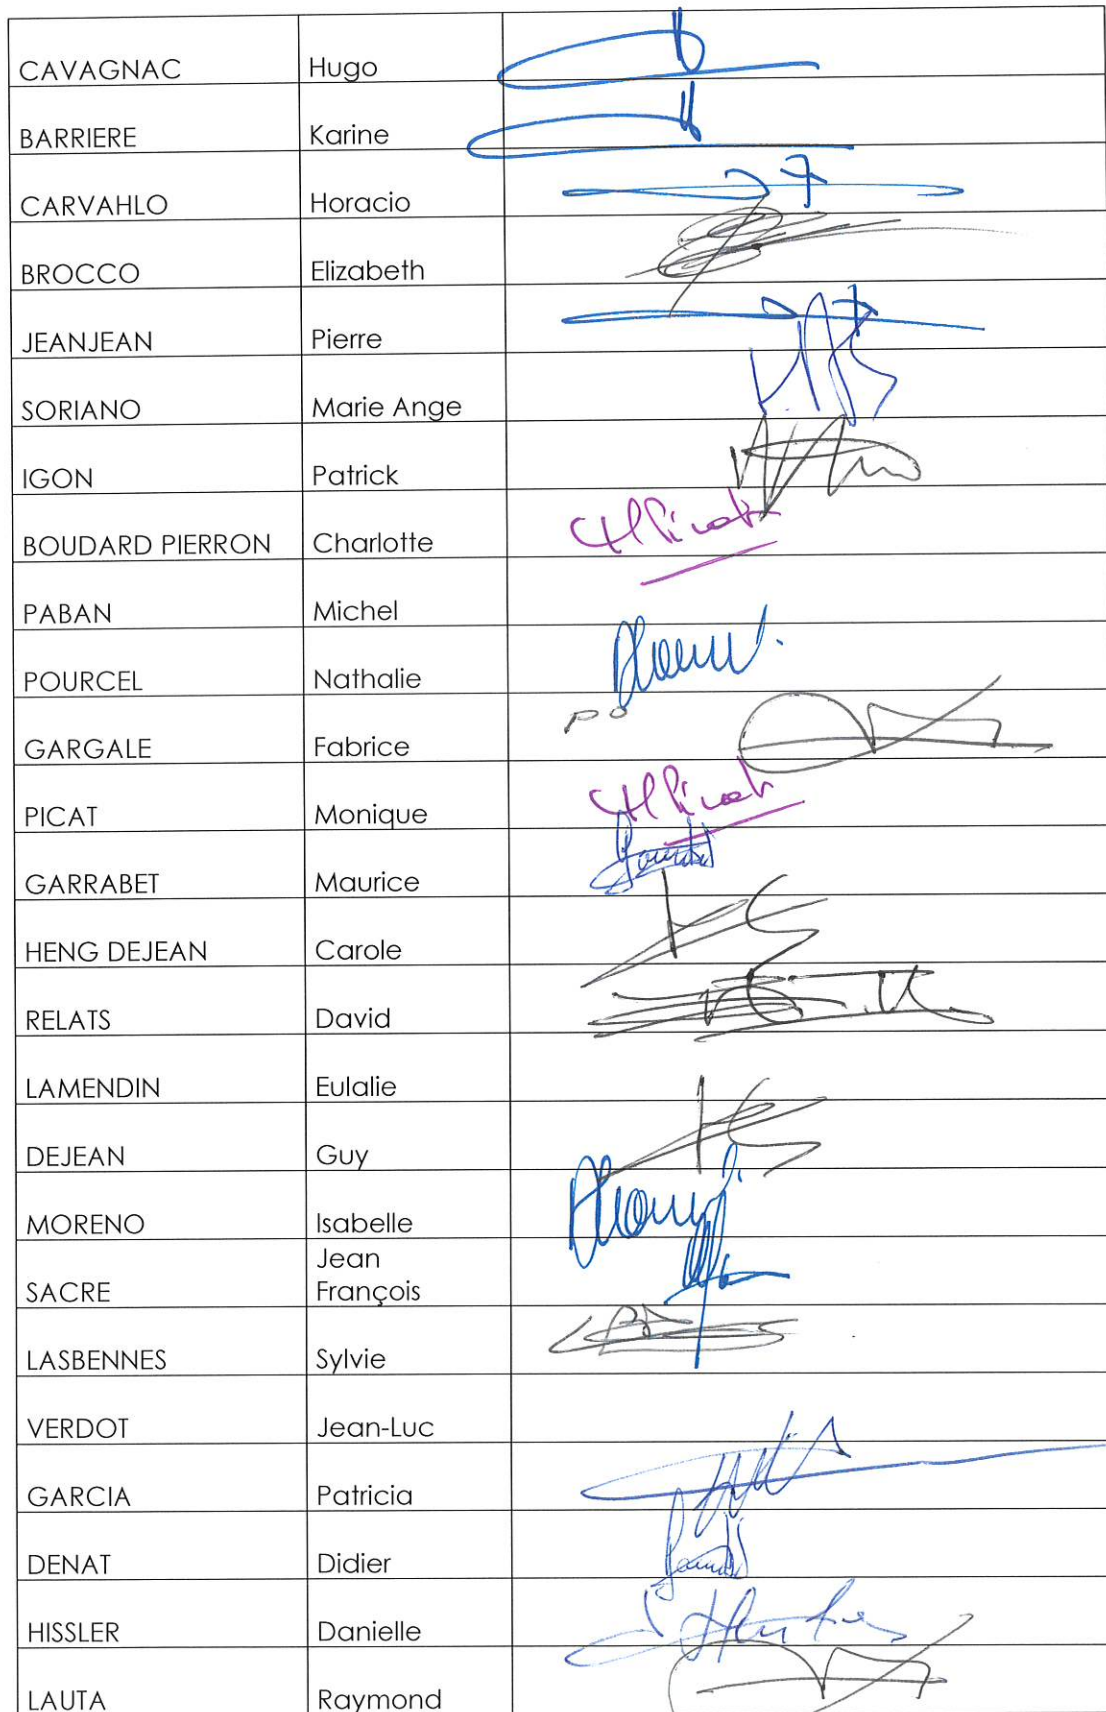 CAVAGNAC Hugo
BARRIERE Karine
CARVAHLO Horacio
BROCCO Elizabeth
JEANJEAN Pierre
SORIANO Marie Ange
IGON Patrick
BOUDARD PIERRON Charlotte
PABAN Michel
POURCEL Nathalie
PO
GARGALE Fabrice
PICAT Monique
GARRABET Maurice
HENG DEJEAN Carole
RELATS David
LAMENDIN Eulalie
DEJEAN Guy
MORENO Isabelle
Jean
SACRE François
LASBENNES Sylvie
VERDOT Jean-Luc
GARCIA Patricia
DENAT Didier
HISSLER Danielle
LAUTA Raymond